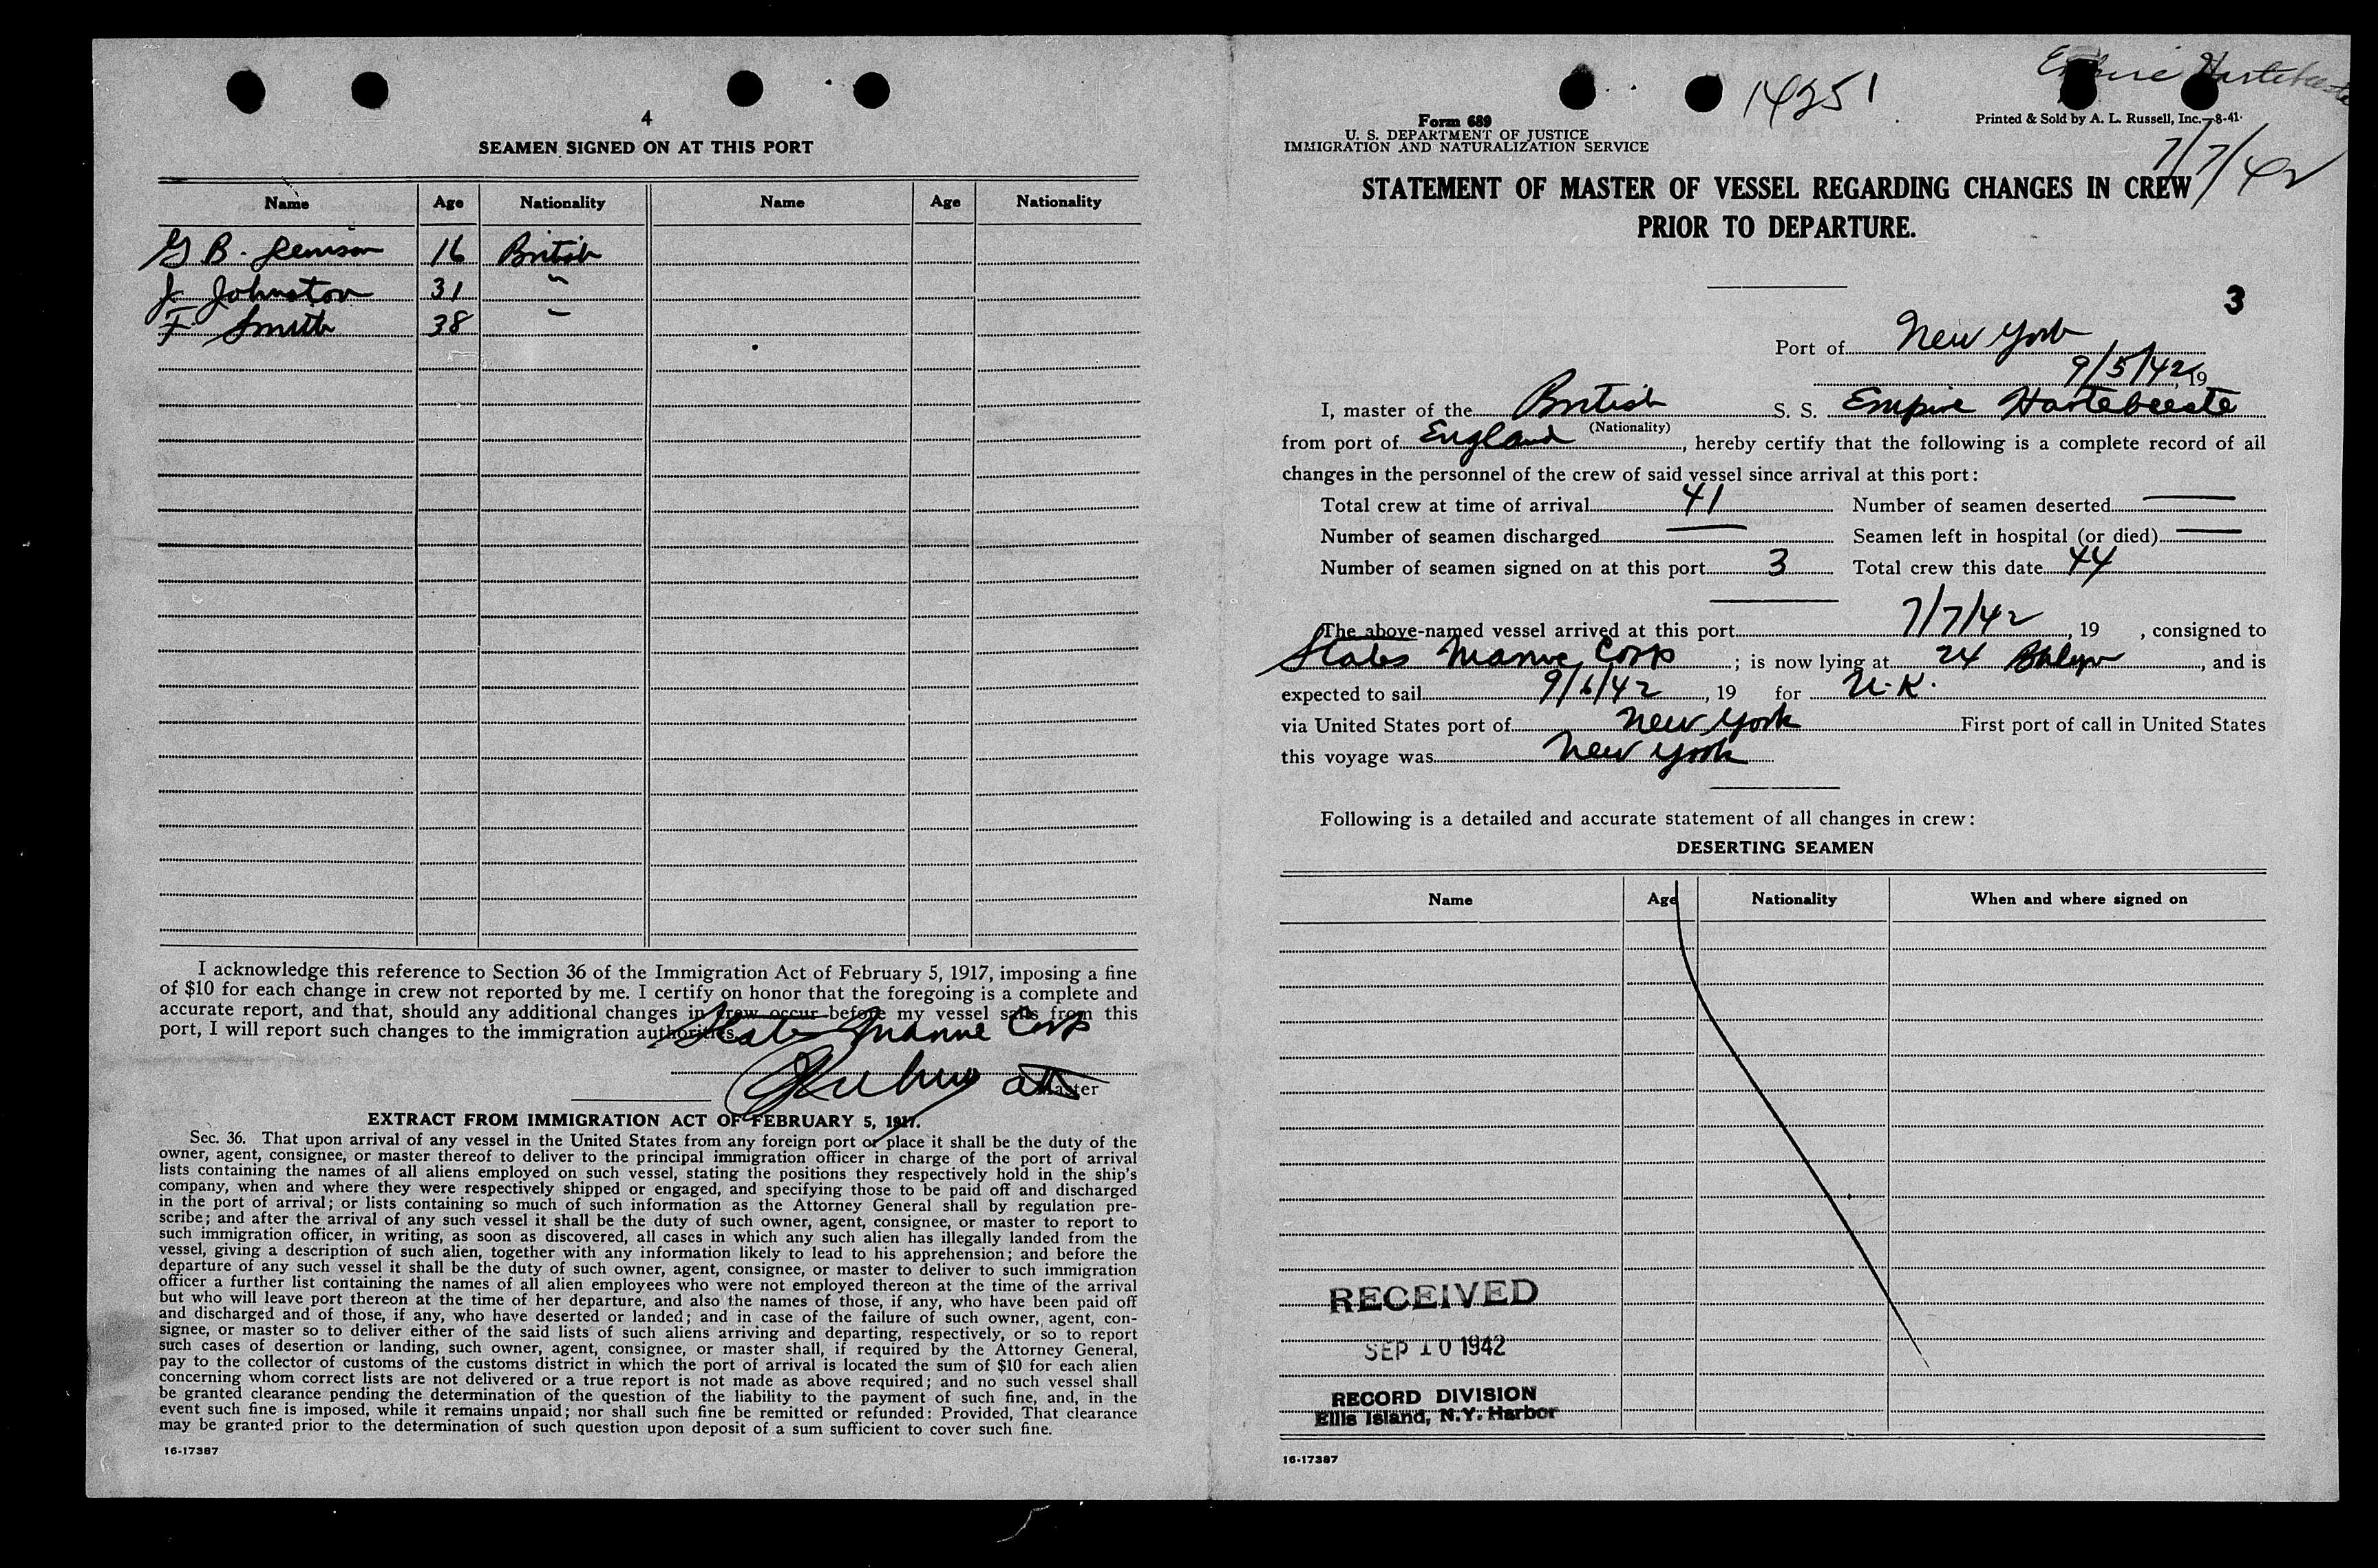 4
SEAMEN SIGNED ON AT THIS PORT
Name Age Nationality Name Age Nationality
G B. 16 British
J. Johnston 31 "
F. Smith 38 "
I acknowledge this reference to Section 36 of the Immigration Act of February 5, 1917, imposing a fine
of $10 for each change in crew not reported by me. I certify on honor that the foregoing is a complete and
accurate report, and that, should any additional changes in crew occur before my vessel sails from this
port, I will report such changes to the immigration authorities.
States Marine Corp
Master
EXTRACT FROM IMMIGRATION ACT OF FEBRUARY 5, 1917.
Sec. 36. That upon arrival of any vessel in the United States from any foreign port or place it shall be the duty of the
owner, agent, consignee, or master thereof to deliver to the principal immigration officer in charge of the port of arrival
lists containing the names of all aliens employed on such vessel, stating the positions they respectively hold in the ship's
company, when and where they were respectively shipped or engaged, and specifying those to be paid off and discharged
in the port of arrival; or lists containing so much of such information as the Attorney General shall by regulation pre-
scribe; and after the arrival of any such vessel it shall be the duty of such owner, agent, consignee, or master to report to
such immigration officer, in writing, as soon as discovered, all cases in which any such alien has illegally landed from the
vessel, giving a description of such alien, together with any information likely to lead to his apprehension; and before the
departure of any such vessel it shall be the duty of such owner, agent, consignee, or master to deliver to such immigration
officer a further list containing the names of all alien employees who were not employed thereon at the time of the arrival
but who will leave port thereon at the time of her departure, and also the names of those, if any, who have been paid off
and discharged and of those, if any, who have deserted or landed; and in case of the failure of such owner, agent, con-
signee, or master so to deliver either of the said lists of such aliens arriving and departing, respectively, or so to report
such cases of desertion or landing, such owner, agent, consignee, or master shall, if required by the Attorney General,
pay to the collector of customs of the customs district in which the port of arrival is located the sum of $10 for each alien
concerning whom correct lists are not delivered or a true report is not made as above required; and no such vessel shall
be granted clearance pending the determination of the question of the liability to the payment of such fine, and, in the
event such fine is imposed, while it remains unpaid; nor shall such fine be remitted or refunded: Provided, That clearance
may be granted prior to the determination of such question upon deposit of a sum sufficient to cover such fine.
16-17387
Empire Hartebeeste
14251
Form 689
U. S. DEPARTMENT OF JUSTICE
IMMIGRATION AND NATURALIZATION SERVICE
Printed & Sold by A. L. Russell, Inc.—8-41
7/7/42
STATEMENT OF MASTER OF VESSEL REGARDING CHANGES IN CREW
PRIOR TO DEPARTURE.
3
Port of New York
9/5/42, 19
I, master of the British S. S. Empire Hartebeeste
(Nationality)
from port of England, hereby certify that the following is a complete record of all
changes in the personnel of the crew of said vessel since arrival at this port:
Total crew at time of arrival 41 Number of seamen deserted —
Number of seamen discharged — Seamen left in hospital (or died) —
Number of seamen signed on at this port 3 Total crew this date 44
The above-named vessel arrived at this port 7/7/42, 19 , consigned to
States Marine Corp; is now lying at 24 Bklyn, and is
expected to sail 9/6/42, 19 for U.K.
via United States port of New York First port of call in United States
this voyage was New York
Following is a detailed and accurate statement of all changes in crew:
DESERTING SEAMEN
Name Age Nationality When and where signed on
RECEIVED
SEP 10 1942
RECORD DIVISION
Ellis Island, N.Y. Harbor
16-17387